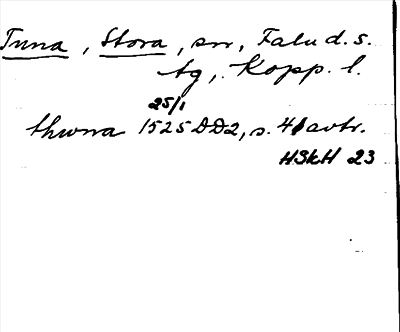 Tuna, Stora, sn, Falu d. s.
tg, Kopp. l.
25/1
thwna 1525 DD2, s. 41 avtr.
HSkH 23